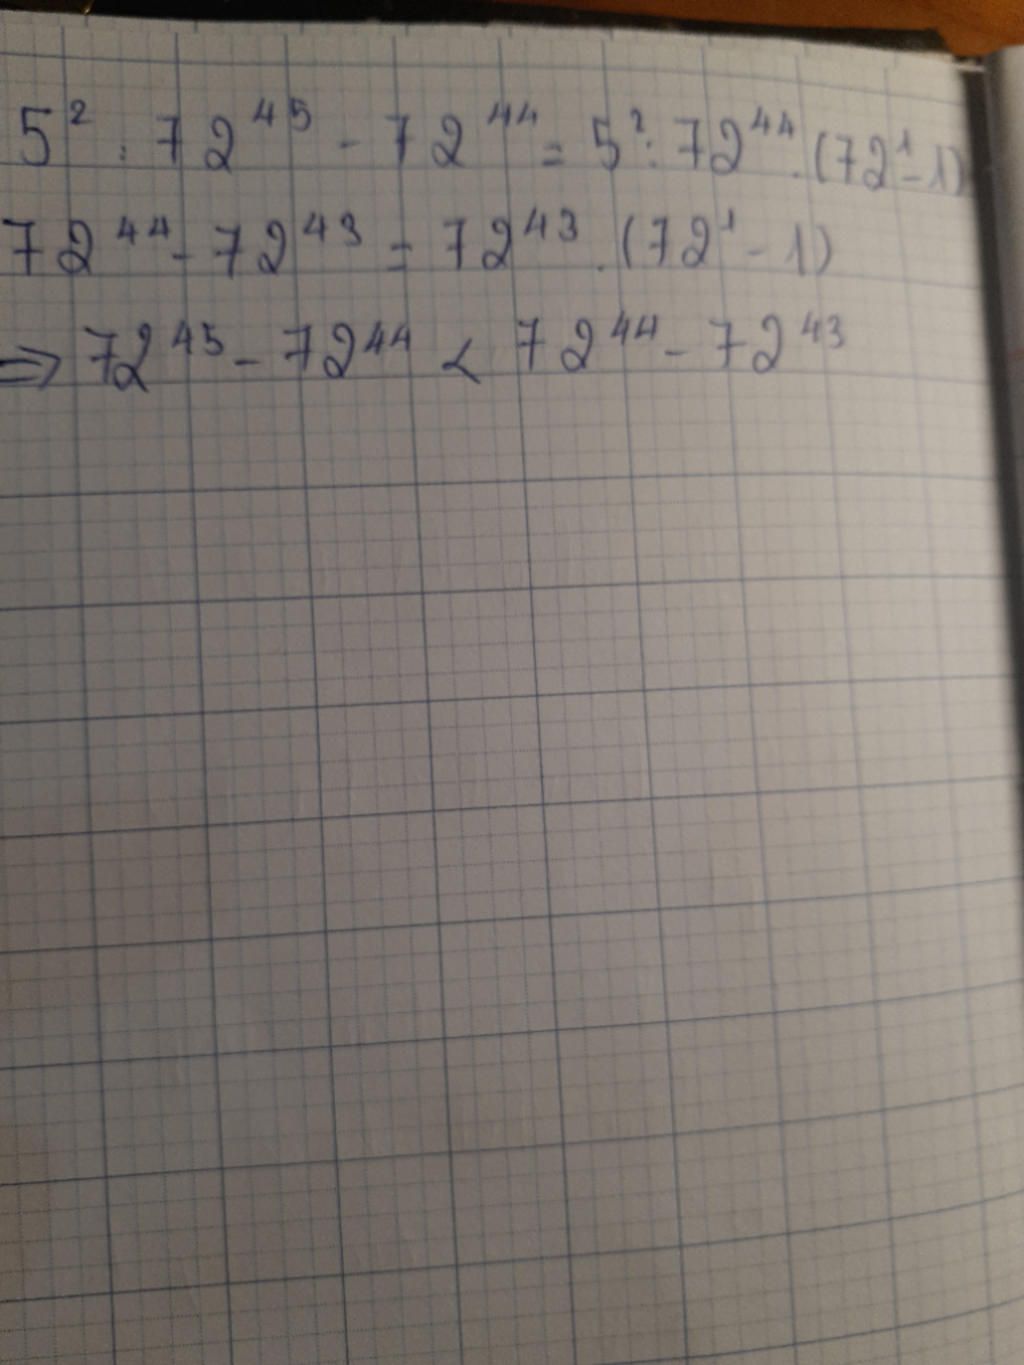 5² : 72⁴⁵ - 72⁴⁴ = 5² : 72⁴⁴ . (72¹ - 1)
72⁴⁴ - 72⁴³ = 72⁴³ . (72¹ - 1)
⇒ 72⁴⁵ - 72⁴⁴ < 72⁴⁴ - 72⁴³